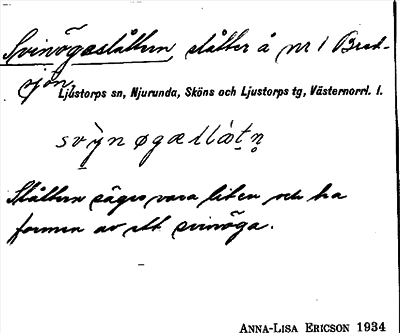 Svinögaslåtten, slåtter å nr 1 Bred-
sjön,
Ljustorps sn, Njurunda, Sköns och Ljustorps tg, Västernorrl. l.
Slåtten säges vara liten och ha
formen av ett svinöga.
ANNA-LISA ERICSON 1934